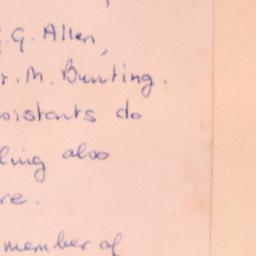 .G. Allen,
r. M. Bunting.
sistants do
ling also
re.
member of